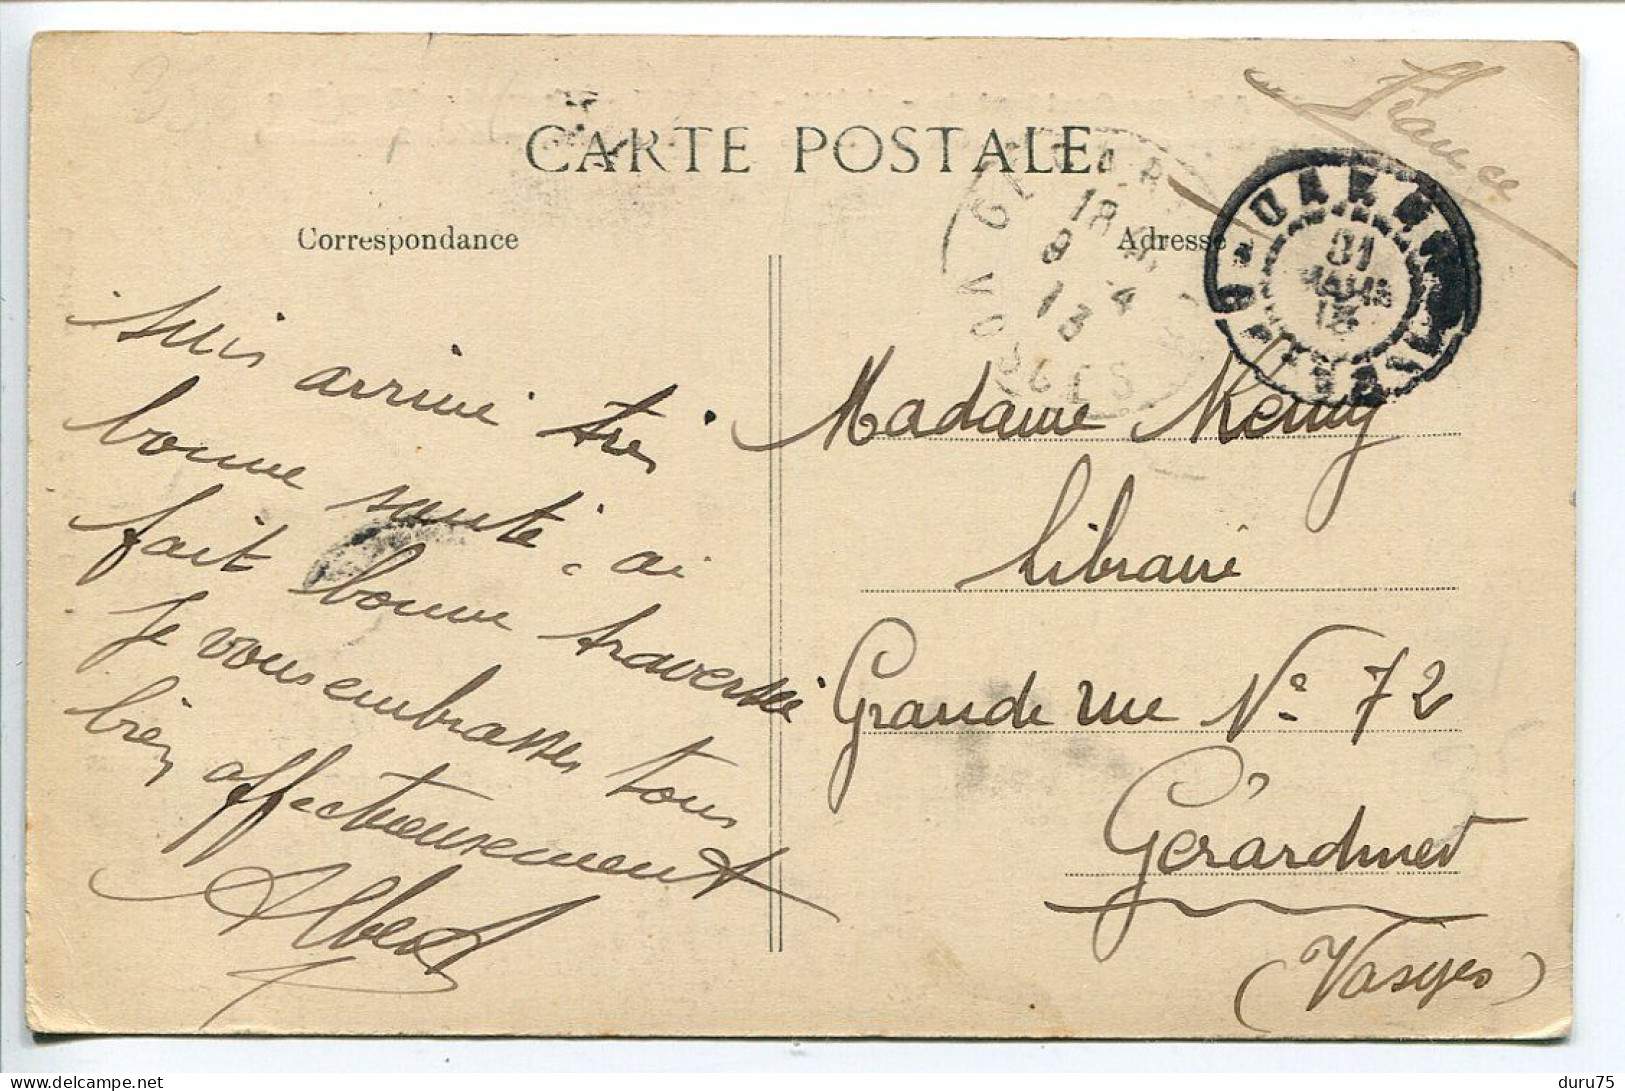 France
CARTE POSTALE
Correspondance
Adresse
18
8 4
13
VOSGES
31
MARS
13
suis arrivé très
bonne santé, ai
fait bonne traversée
Je vous embrasse tous
bien affectueusement
Albert
Madame
Libraire
Grande rue N° 72
Gérardmer
(Vosges)
duru75